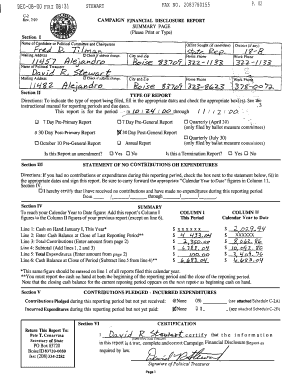 DEC-08-00 FRI 08:31 STEWART FAX NO. 2083760155 P. 02
C-2
CAMPAIGN FINANCIAL DISCLOSURE REPORT
SUMMARY PAGE
(Please Print or Type)
Section I
Name of Candidate or Political Committee and Chairperson
Fred D. Tilman State Rep. 18-B
Mailing Address City and Zip Home Phone Work Phone
11457 Alejandro Boise 83709 322-1133 322-1133
Name of Political Treasurer
David R. Stewart
Mailing Address City and Zip Home Phone Work Phone
11482 Alejandro Boise 83709 322-8623 378-0072
Section II TYPE OF REPORT
Directions: To indicate the type of report being filed, fill in the appropriate dates and check the appropriate box(es). See the
instruction manual for reporting periods and due dates.
This report is for the period 10-24-00 through 11/12/00
7 Day Pre-Primary Report 7 Day Pre-General Report Quarterly (April 30)
(only filed by ballot measure committees)
30 Day Post-Primary Report 30 Day Post-General Report
Quarterly (July 30)
October 10 Pre-General Report Annual Report (only filed by ballot measure committees)
Is this Report an amendment? Yes No Is this a Termination Report? Yes No
Section III STATEMENT OF NO CONTRIBUTIONS OR EXPENDITURES
Directions: If you had no contributions or expenditures during this reporting period, check the box next to the statement below, fill in
the appropriate dates and sign this report. Be sure to carry forward the appropriate "Calendar Year to Date" figures in Column II,
Section IV.
I hereby certify that I have received no contributions and have made no expenditures during this reporting period
from through
Section IV SUMMARY
To reach your Calendar Year to Date figure: Add this report's Column I COLUMN I COLUMN II
figures with the Column II figures of your previous report (except on line 6). This Period Calendar Year to Date
Line 1: Cash on Hand January 1, This Year* $ XXXXXX $ 2,029.94
Line 2: Enter Cash Balance at Close of Last Reporting Period** $ 4,433.04 $ XXXXXX
Line 3: Total Contributions (Enter amount from page 2) $ 2,350.00
Line 4: Subtotal (Add lines 1, 2 and 3)
Line 5: Total Expenditures (Enter amount from page 2) $ 100.00
Line 6: Cash Balance at Close of Period (Subtract line 5 from line 4)**
*This same figure should be entered on line 1 of all reports filed this calendar year.
**You must report the cash on hand at both the beginning of the reporting period and the close of the reporting period.
Note that the closing cash balance for the current reporting period appears on the next report as beginning cash on hand.
Section V CONTRIBUTIONS PLEDGED - INCURRED EXPENDITURES
Contributions Pledged during this reporting period but not yet received:
Incurred Expenditures during this reporting period but not yet paid:
Section VI CERTIFICATION
Return This Report To:
Pete T. Cenarrusa
Secretary of State
PO Box 83720
Boise ID 83720-0080
fax: (208) 334-2282
I David R Stewart certify that the information
in this report is a true, complete and correct Campaign Financial Disclosure Report as
required by law.
Signature of Political Treasurer
Page 1